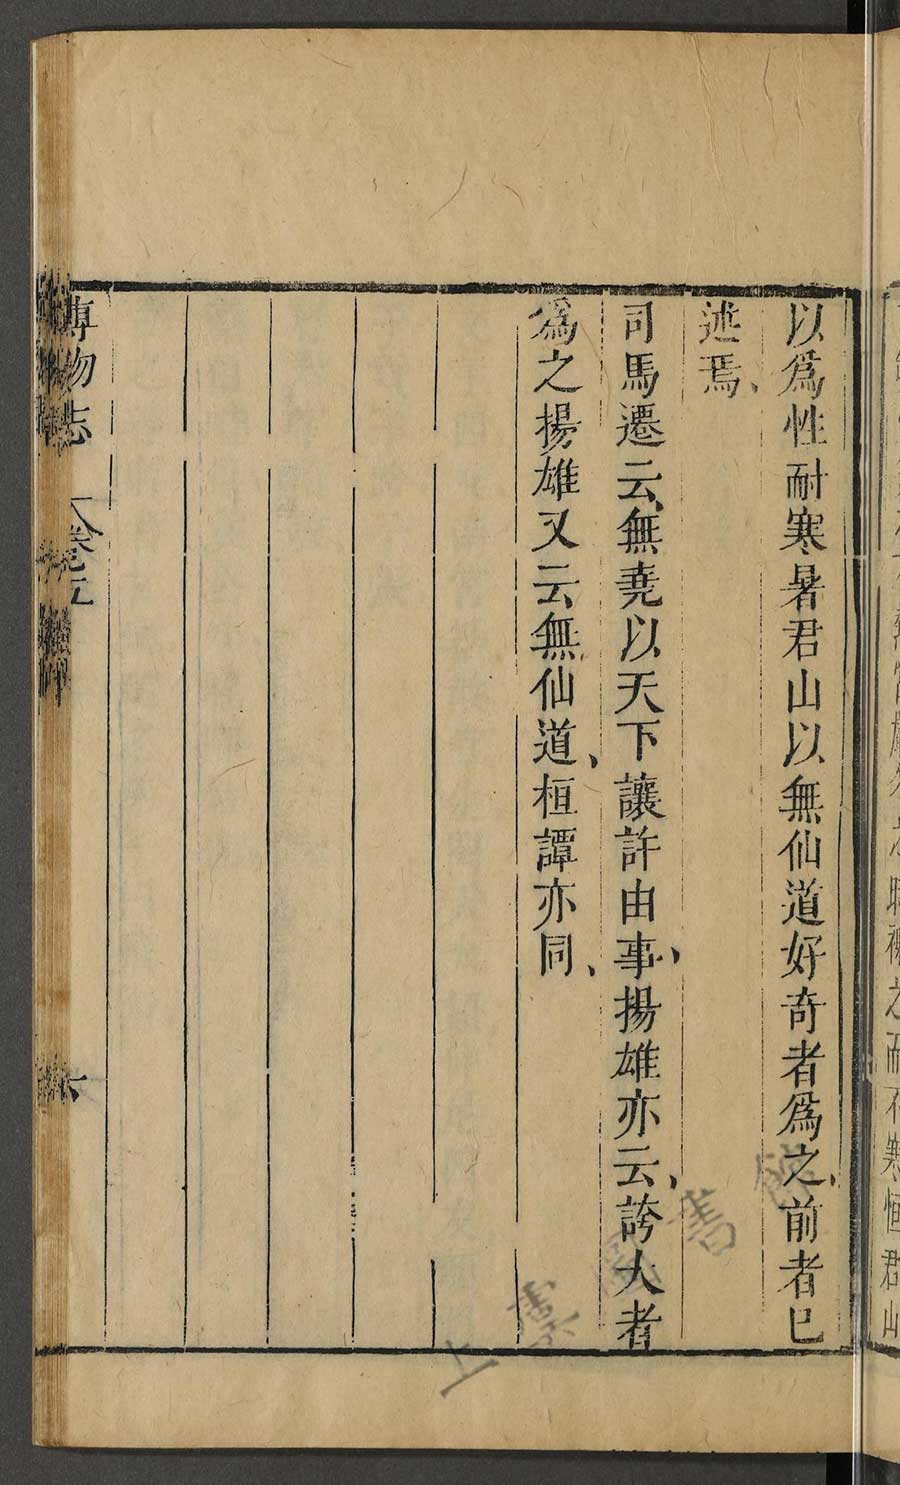 以爲性耐寒暑君山以無仙道好奇者爲之、前者已
述焉、
司馬遷云、無堯以天下讓許由事、揚雄亦云、誇大者
爲之揚雄又云無仙道、桓譚亦同、
博物志 卷五 六